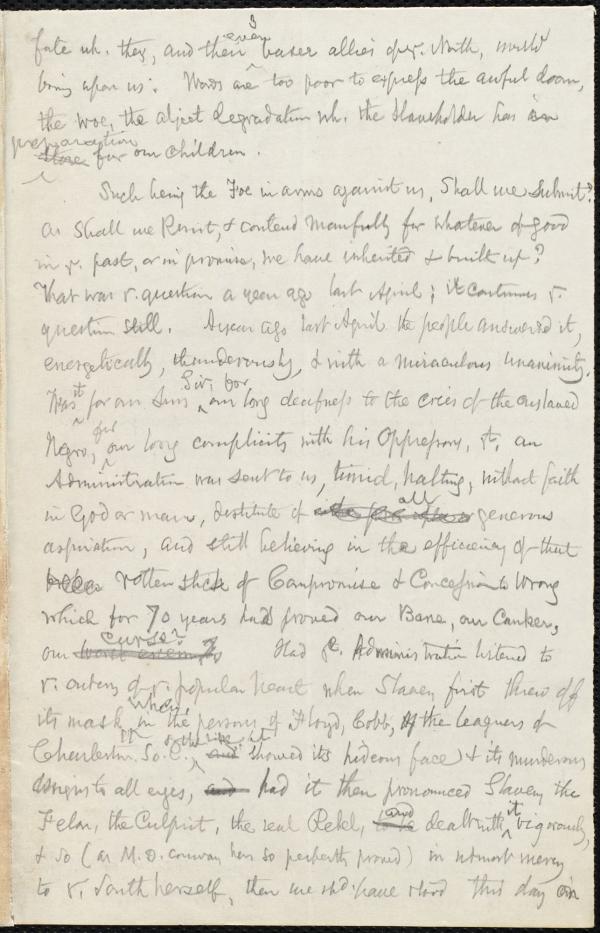 3
fate wh. they, and their even baser allies of yr. North, would
bring upon us. Words are too poor to express the awful doom,
the woe, the abject degradation wh. the Slaveholder has in
preparation
store for our children.
Such being the Foe in arms against us, Shall we Submit?
or Shall we Resist, & contend manfully for whatever of good
in ye. past, or in promise, we have inherited & built up?
That was ye. question a year ago last April; it continues ye.
question still. A year ago last April the people answered it,
energetically, thunderously, & with a miraculous unanimity.
Was it for our Sins, Sir, for our long deafness to the cries of the enslaved
Negro, for our long complicity with his Oppressors, yt. an
Administration was sent to us, timid, halting, without faith
in God or man, destitute of all generous
aspiration, and still believing in the efficiency of that
rotten stick of Compromise & Concession to Wrong
which for 70 years had proved our Bane, our Canker,
our curse? worst enemy? Had ye. Administration listened to
ye. outcry of ye. popular heart when Slavery first threw off
its mask, when in the persons of Floyd, Cobb, & the leaguers of
Charleston, So. C., or the like, it and showed its hideous face & its murderous
designs to all eyes, and had it then pronounced Slavery the
Felon, the Culprit, the real Rebel, and dealt with it vigorously,
& so (as M. D. Conway has so perfectly proved) in utmost mercy
to ye. South herself, then we shd. have stood this day in